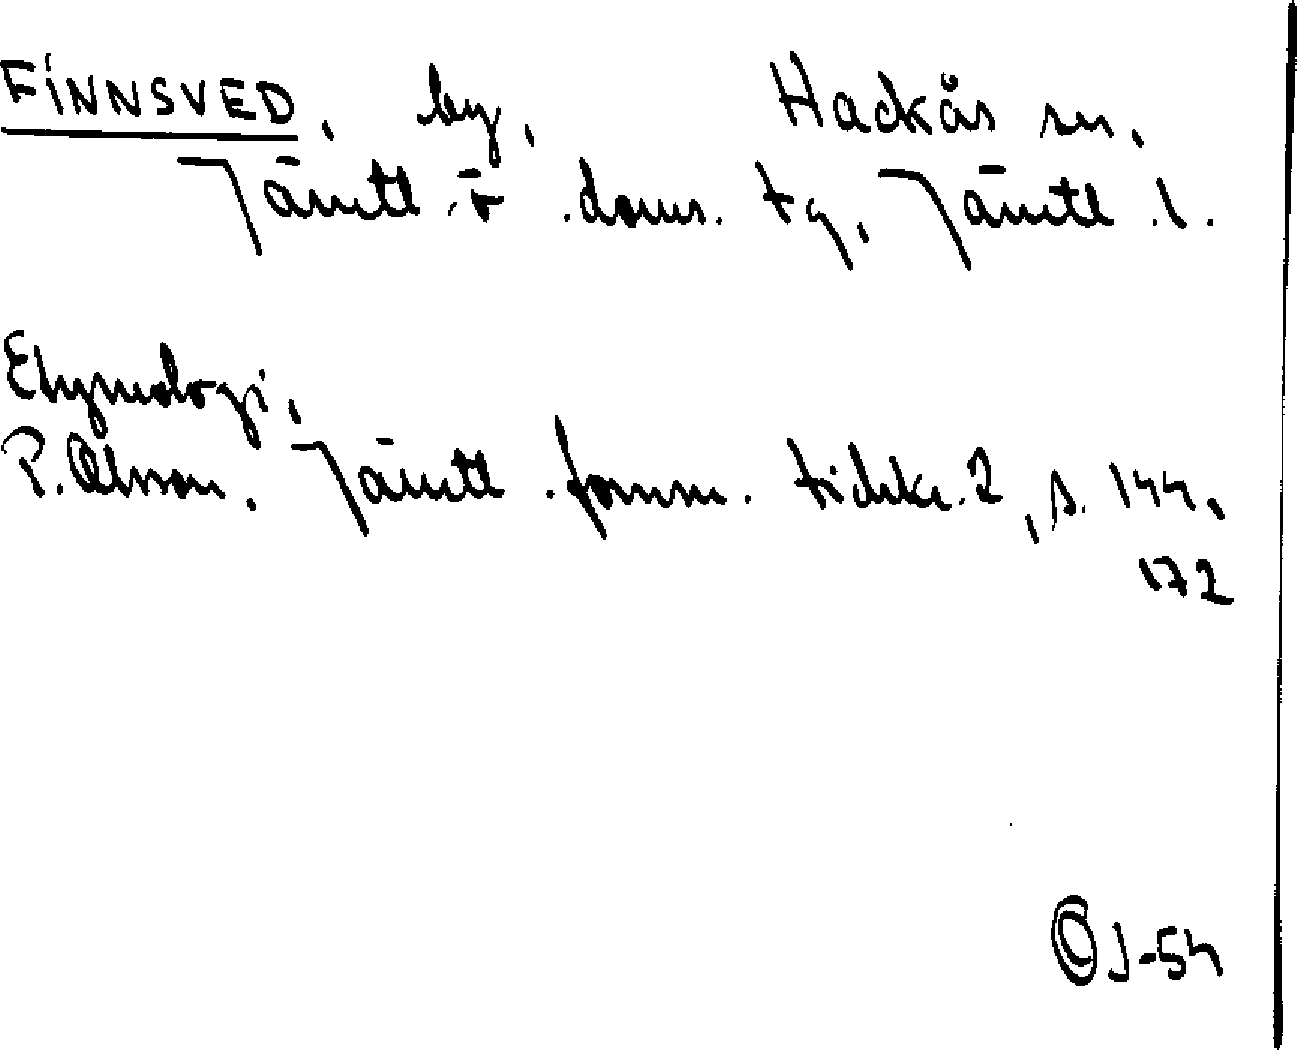 FINNSVED, by, Hackås sn,
Jämtl. ö. doms. tg, Jämtl. l.
Etymologi,
P. Olsson, Jämtl. fornm. tidskr. 2, s. 144,
172
OJ-54